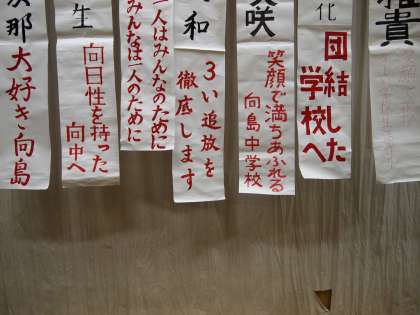 雅貴
化
団結した
学校へ
咲
笑顔で満ちあふれる
向島中学校
和
3い追放を
徹底します
一人はみんなのために
みんなは一人のために
生
向日性を持った
向中へ
那
大好き向島